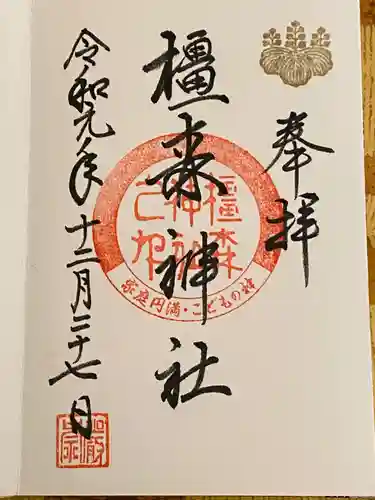 奉拝
橿森神社
令和元年十二月二十七日
橿森
神社
之印
家庭円満・こどもの神